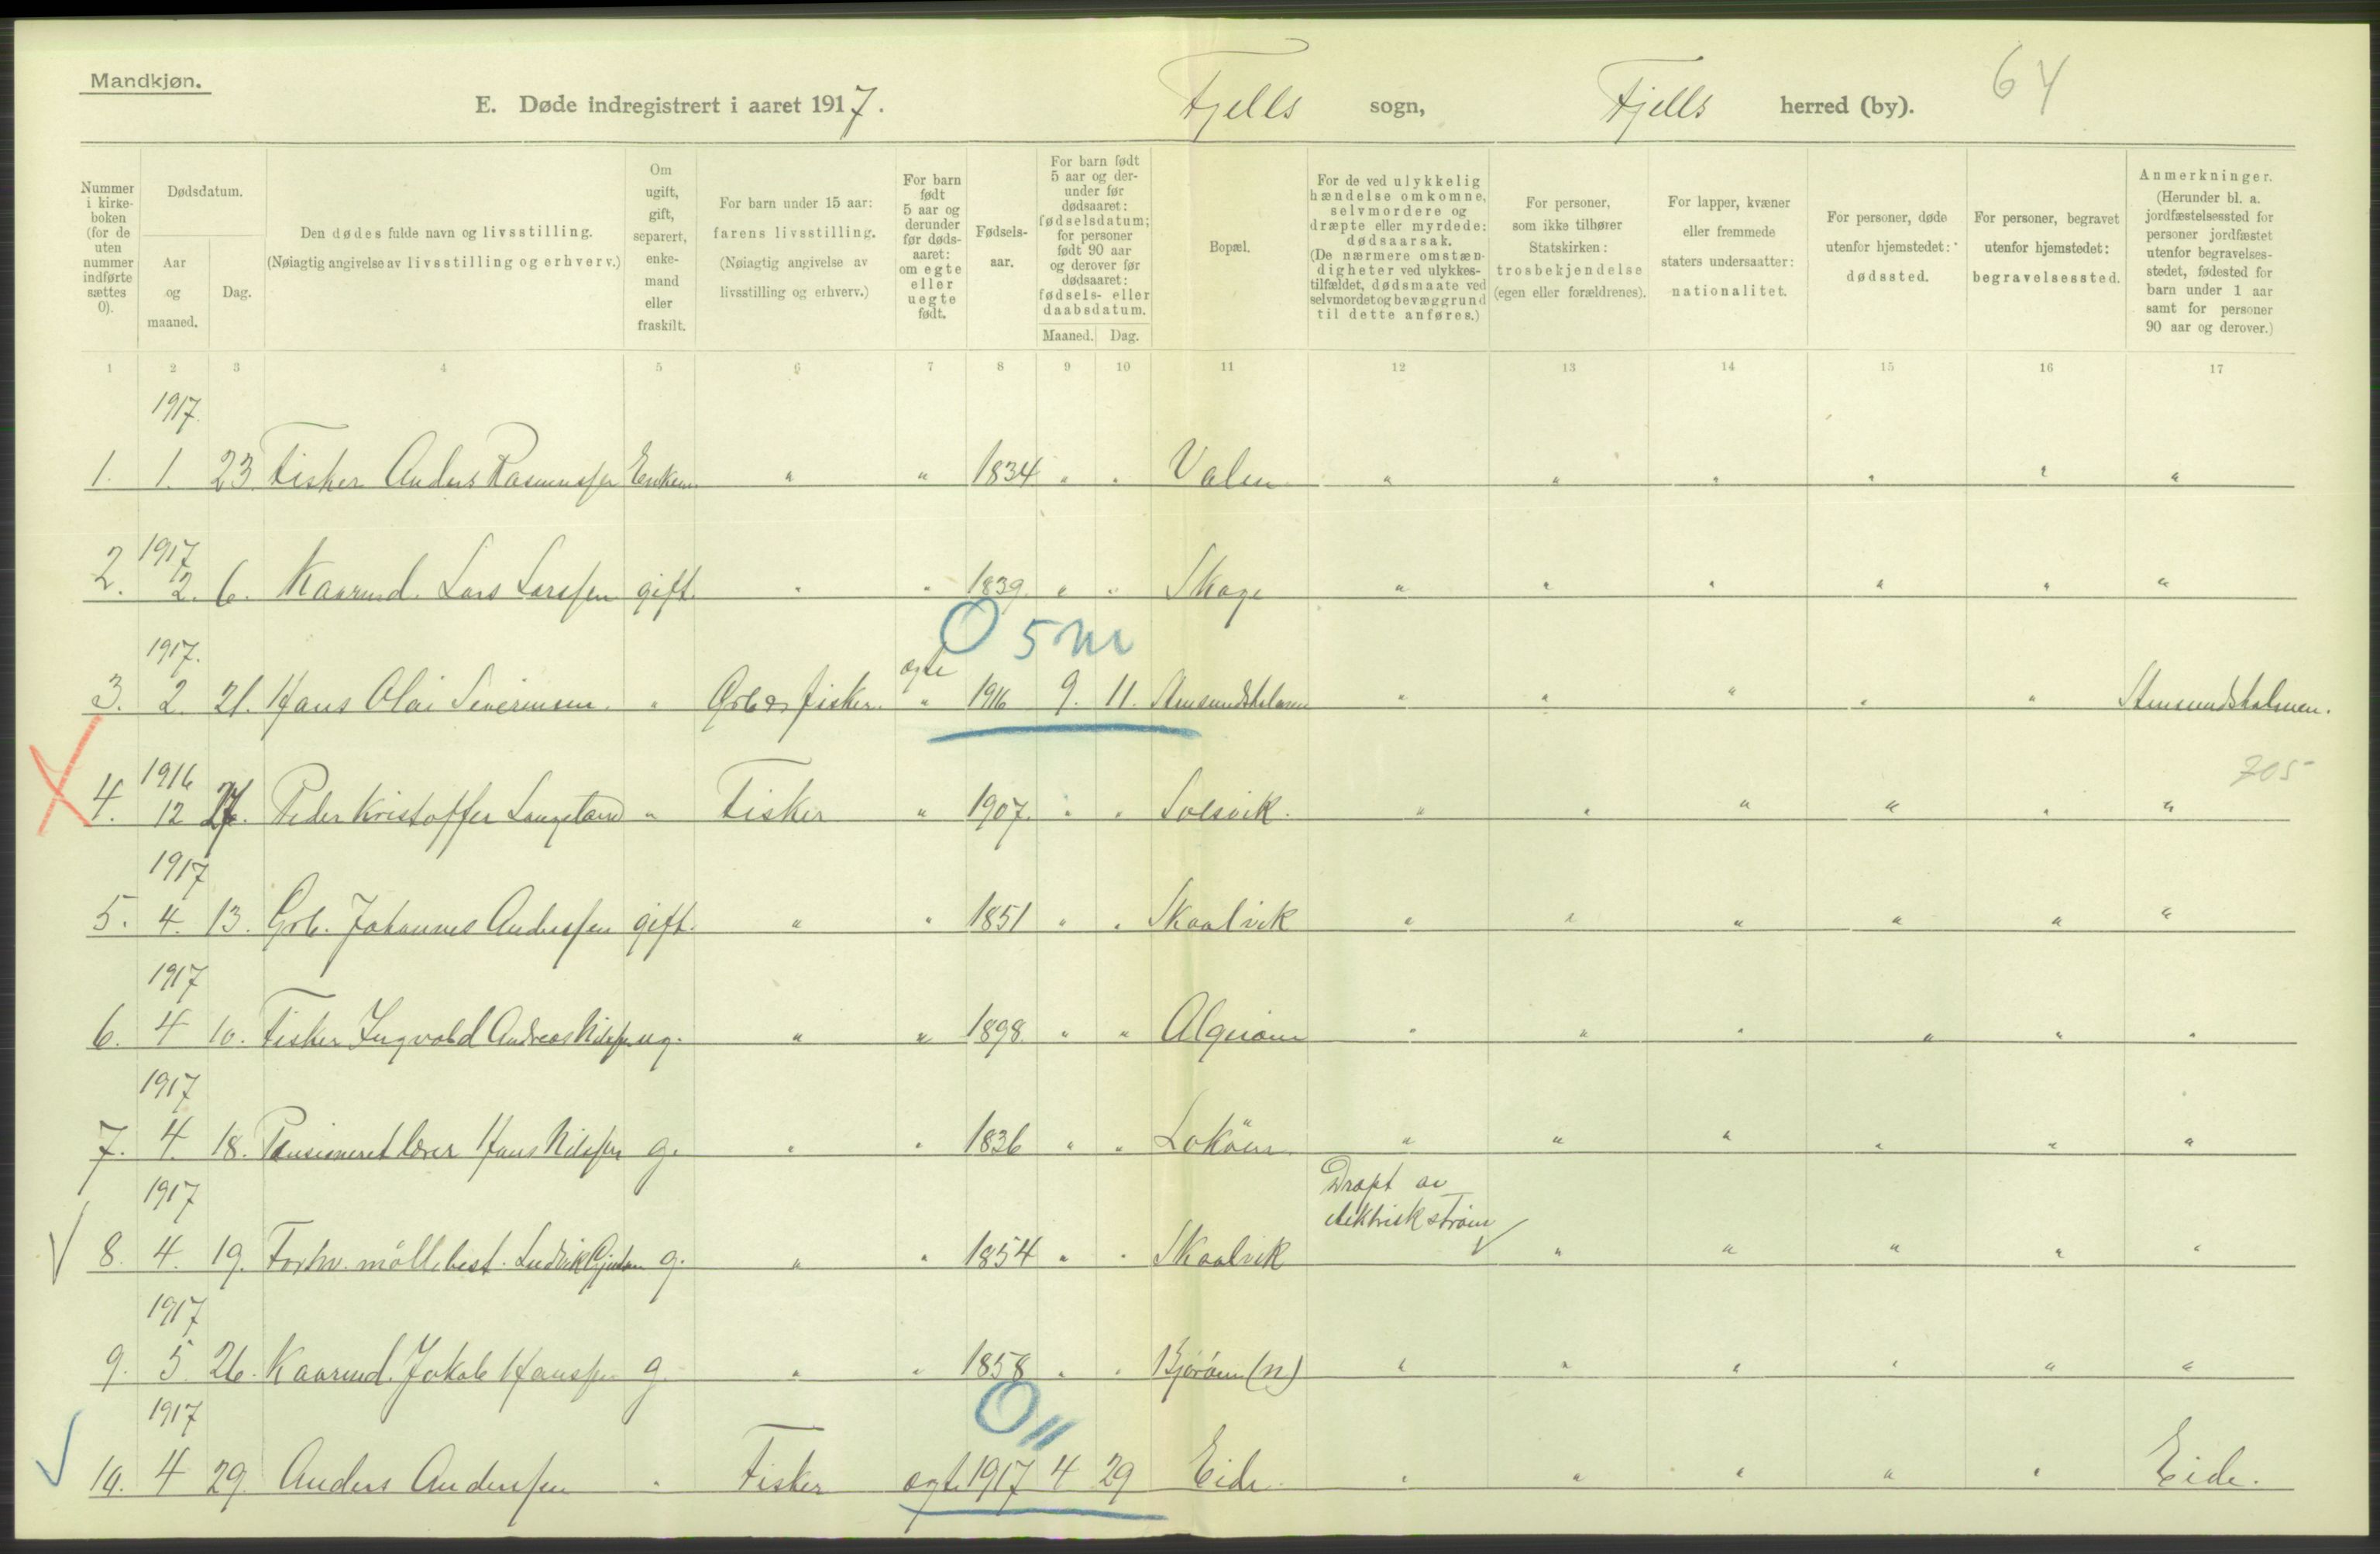 Mandkjøn.
E. Døde indregistrert i aaret 1917. Fjells sogn, Fjells herred (by). 64
Nummer i kirke-boken (for de uten nummer indførte sættes 0).
Dødsdatum.
Aar og maaned.
Dag.
Den dødes fulde navn og livsstilling.
(Nøiagtig angivelse av livsstilling og erhverv.)
Om ugift, gift, separert, enke-mand eller fraskilt.
For barn under 15 aar: farens livsstilling.
(Nøiagtig angivelse av livsstilling og erhverv.)
For barn født 5 aar og derunder før døds-aaret: om egte eller uegte født.
Fødsels-aar.
For barn født 5 aar og der-under før dødsaaret: fødselsdatum; for personer født 90 aar og derover før dødsaaret: fødsels- eller daabsdatum.
Maaned. Dag.
Bopæl.
For de ved ulykkelig hændelse omkomne, selvmordere og dræpte eller myrdede: dødsaarsak.
(De nærmere omstæn-digheter ved ulykkes-tilfældet, dødsmaate ved selvmordet og bevæggrund til dette anføres.)
For personer, som ikke tilhører Statskirken: trosbekjendelse (egen eller forældrenes).
For lapper, kvæner eller fremmede staters undersaatter: nationalitet.
For personer, døde utenfor hjemstedet: dødssted.
For personer, begravet utenfor hjemstedet: begravelsessted.
Anmerkninger.
(Herunder bl. a. jordfæstelsessted for personer jordfæstet utenfor begravelses-stedet, fødested for barn under 1 aar samt for personer 90 aar og derover.)
1 2 3 4 5 6 7 8 9 10 11 12 13 14 15 16 17
1917.
1. 1. 23. Fisker Anders Rasmussen Enkem. " " 1834 " " Valen " " " " " "
1917
2. 2. 6. Kaarmd. Lars Larssen gift. " " 1839. " " Skage " " " " " "
O 5 m
1917. ægte
3. 2. 21. Hans Olai Severinsen. " Grb. og fisker. " 1916 9. 11. " " " " "
705
1916
4. 12 Peder Kristoffer Langeland " Fisker " 1907. " " Solsvik. " " " " " "
1917
5. 4. 13. Grb. Johannes Anderssen gift. " " 1851 " " Skaalvik " " " " " "
1917
6. 4 10. Fisker Ingvald Andreas Nilssen ug. " " 1898. " " Algrøen " " " " " "
1917
7. 4. 18. Pensioneret lærer Hans Nilssen g. " " 1836 " " Lokøen " " " " " "
1917 Dræpt av
elektrisk strøm
8. 4. 19. Forhv. møllebest. Ludvik g. " " 1854 " " Skaalvik " " " " "
1917
9. 5. 26. Kaarmd. Jakob Hanssen g. " " 1858 " " Bjørøen (n) " " " " " "
O 11
1917
10. 4 29. Anders Anderssen " Fisker ægt. 1917 4 29 Eide. " " " " " Eide.